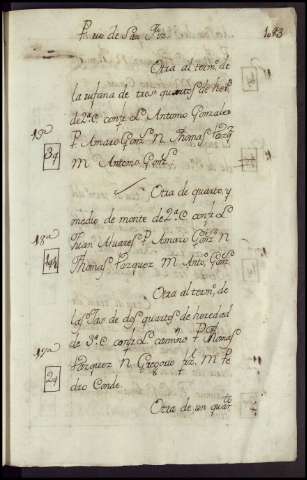 Otra al term.º de
la rufiana de tres quartos de her.d
de 2ª C. conf.e L. Antonio Gonzales
19ª
P. Amaro Gonz.s N. Thomas
3q
M Antonio Gonz.s
Otra de quarto, y
medio de monte de 2ª C. conf.e L.
18ª
Juan Alvares P. Amaro Gonz.s N
Thomas Vazquez M Ant.º Gonz.s
Otra al term.º de
de dos quartos de heredad
de 3ª C. conf.e L. camino P. Thomas
17ª
Vazquez N. Gregorio M. Pe
2q
dro Conde
Otra de un quar.to